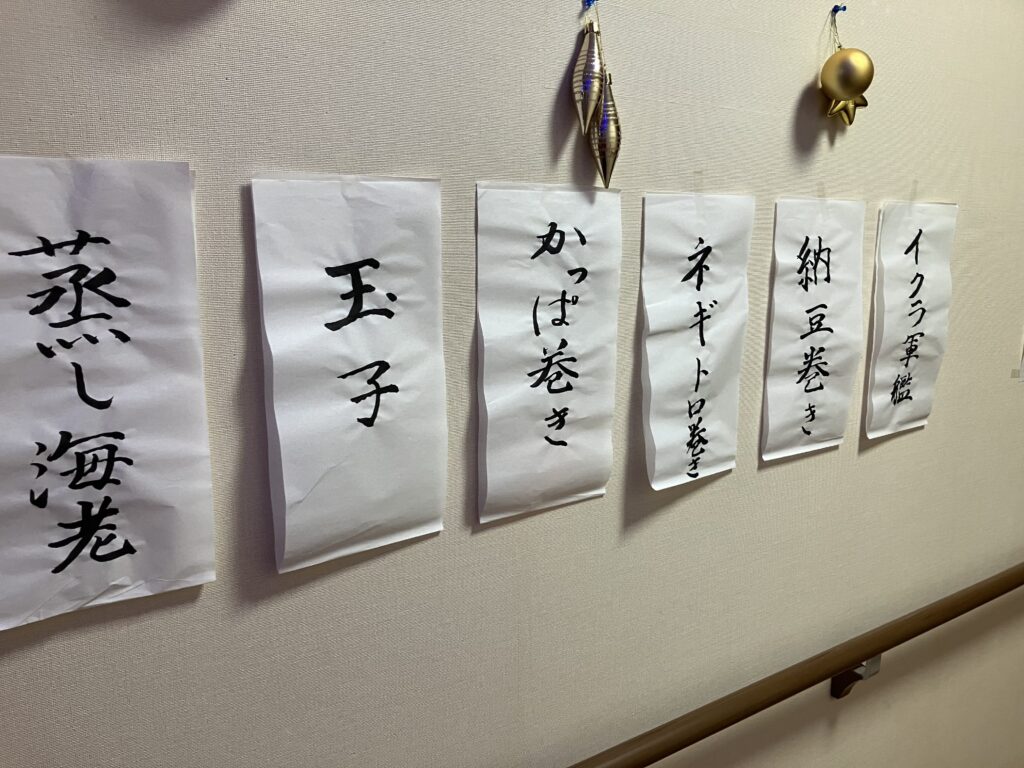 蒸し海老
玉子
かっぱ巻き
ネギトロ巻き
納豆巻き
イクラ軍艦